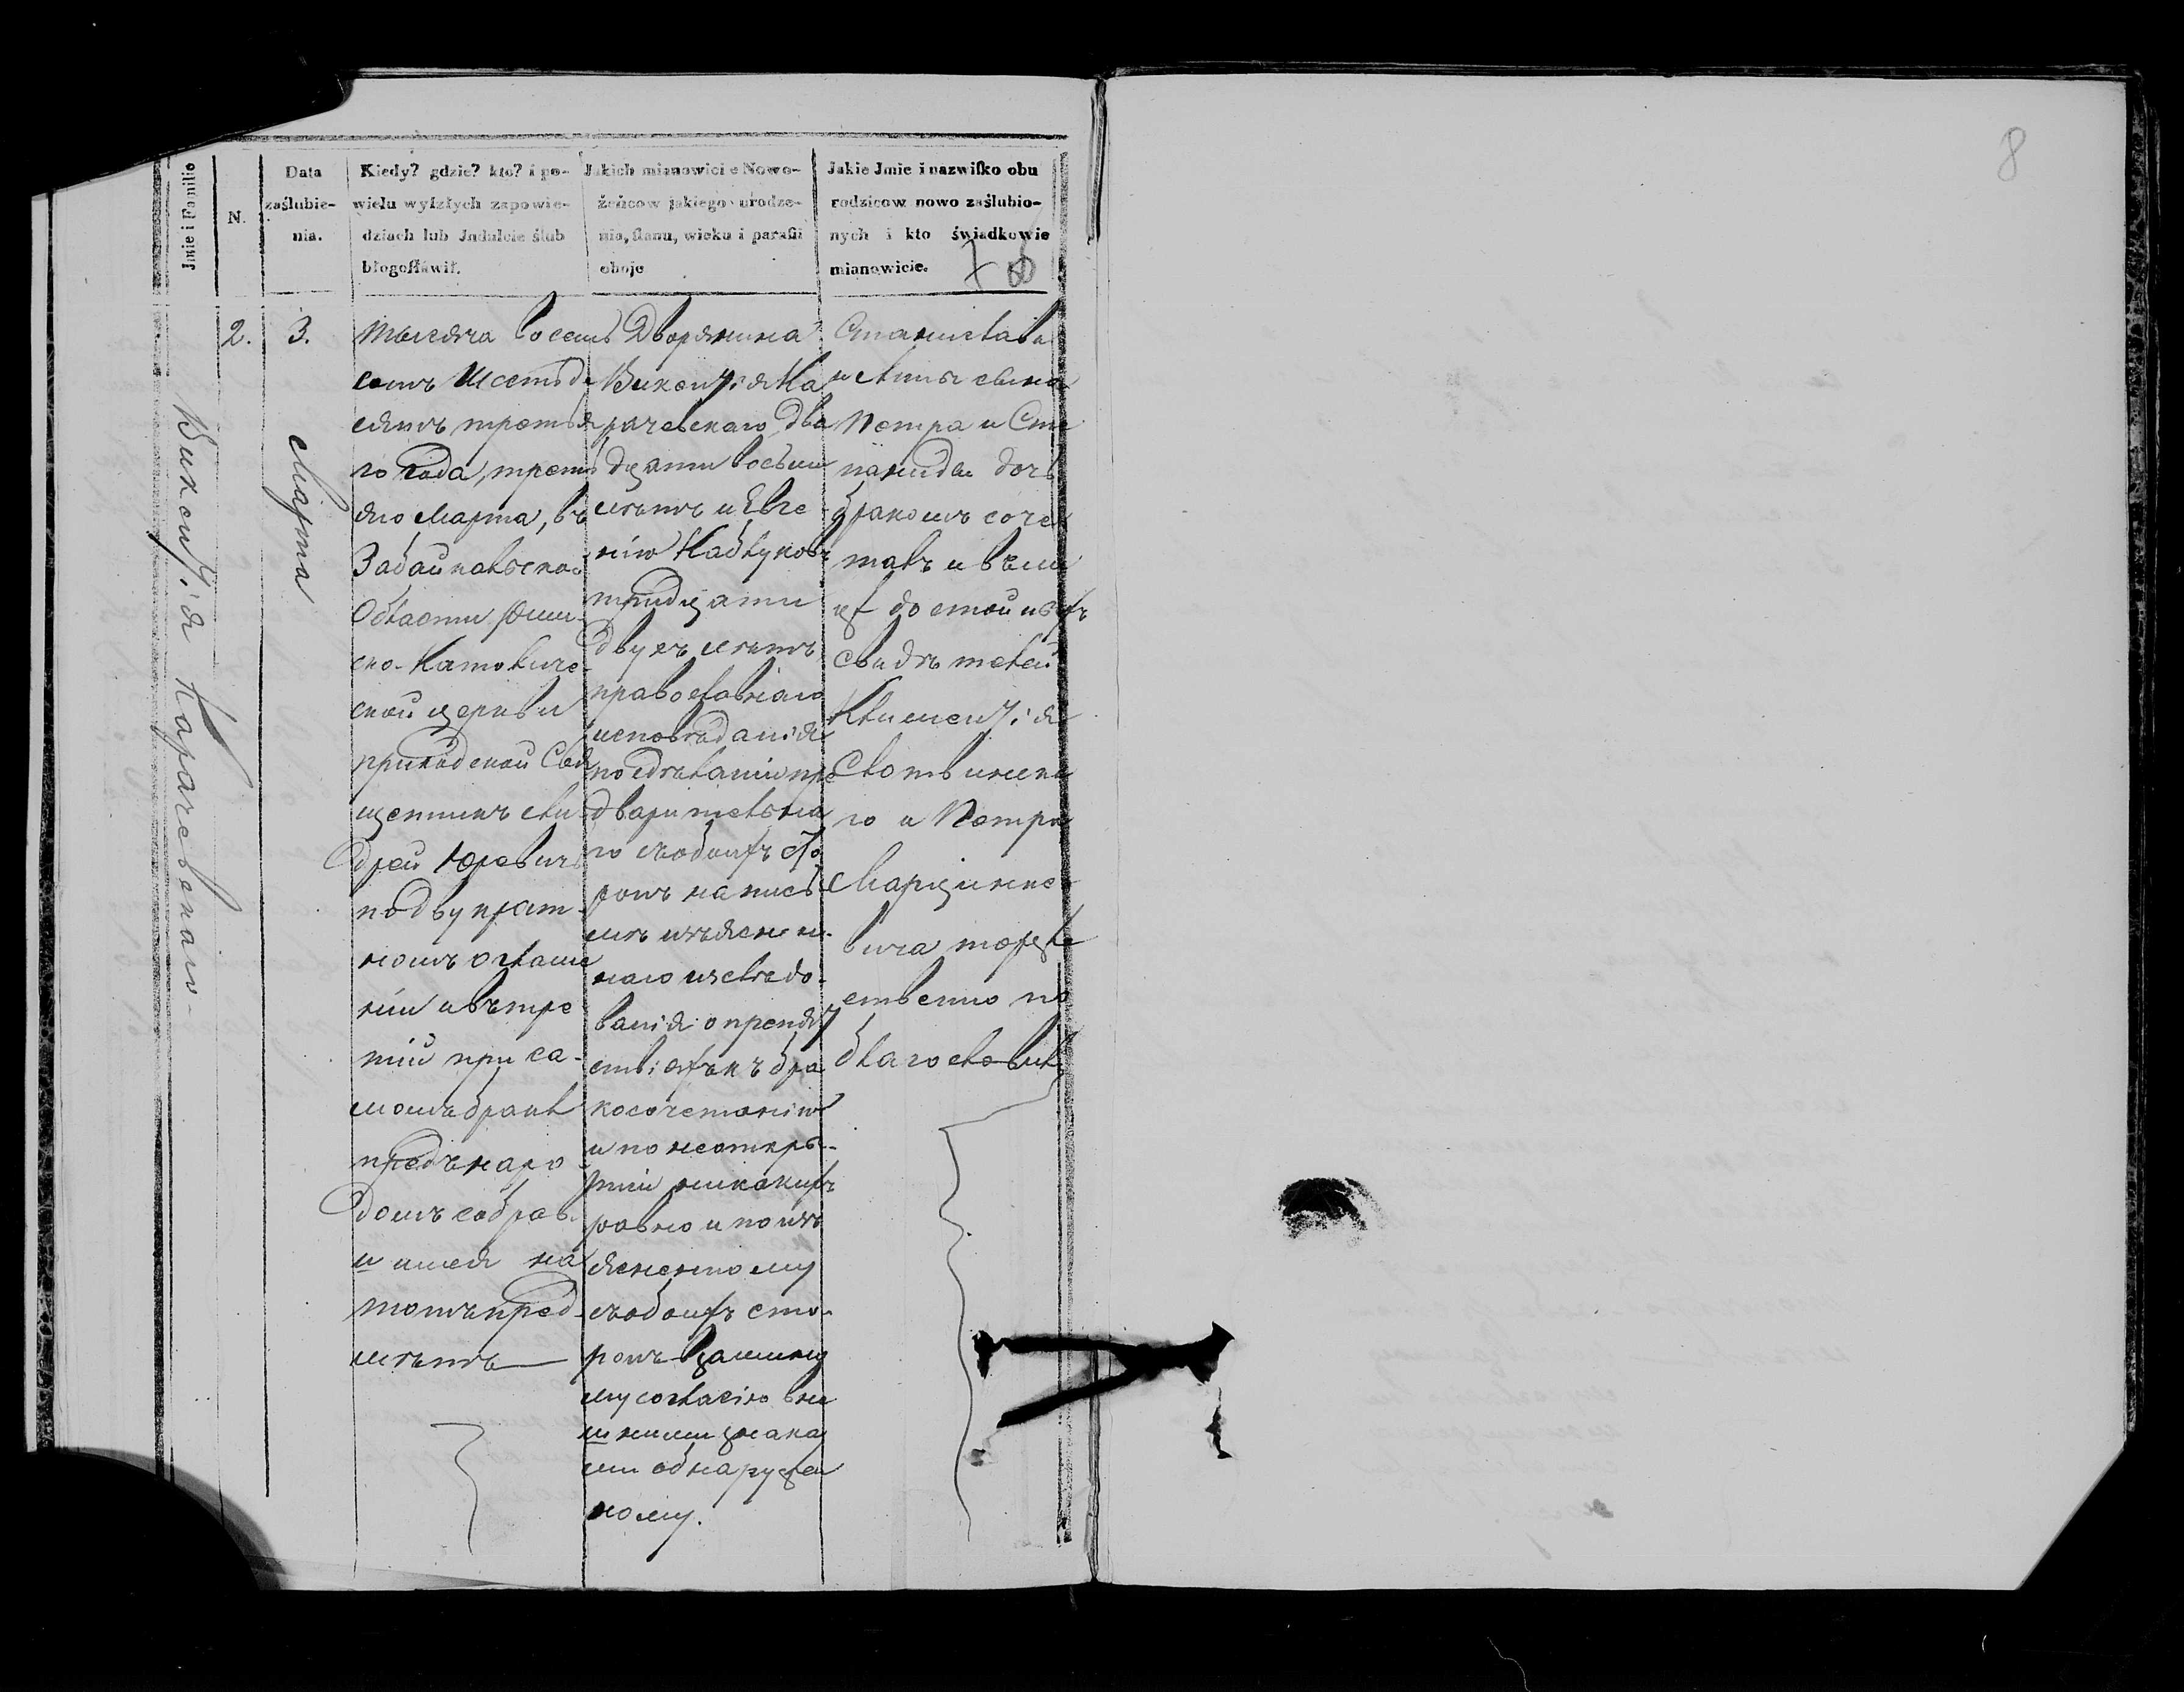 8
Jmie i Familie
N.
Data
zaślubie-
nia.
Kiedy? gdzie? kto? i po-
wielu wyſzłych zapowie-
dziach lub Jndulcie ślub
błogoſławił.
Jakich mianowicie Nowo-
żeńcow jakiego urodze-
nia, ſtanu, wieku i parafii
oboje
Jakie Jmie i nazwiſko obu
rodzicow nowo zaślubio-
nych i kto świadkowie
mianowicie.
7
Викентія Карачевскаго
2.
3.
Марта
Тысяча восемь
сотъ Шестьде
сятъ третья
го года, треть
яго Марта, въ
Забайкальской
Области Рим
ско-Католиче
ской церкви
приходской Свя
щенникъ Ан
дрей Юревичъ
по двукрат-
номъ оглаше
ніи а въ тре
тій при са-
момъ бракѣ
предъ наро
домъ собрав
шимся на
тотъ пред-
метъ
Дворянина
Викентія Ка
рачевскаго два
дцати восьми
лѣтъ и Евге-
нію Каблукову
тридцати
двухъ лѣтъ
православнаго
исповѣданія
по сдѣланію пре
дварительна
го съ обоихъ сто
ронъ на пись
мѣ изъяснен-
наго изслѣдо-
ванія о препят
ствіяхъ къ бра
косочетанію
и по неоткры-
тіи никакихъ
равно и по изъ
ясненному
съ обоихъ сто-
ронъ взаимно
му согласію внѣ
шними знака
ми обнаружен
ному.
Станислава
и Анны сына
Петра и Сте
паниды дочь
бракомъ соче
талъ и въ ли
цѣ достойныхъ
Свидѣтелей
Климентія
Слотвинска
го и Петра
Марцинке
вича торже
ственно по
благословилъ